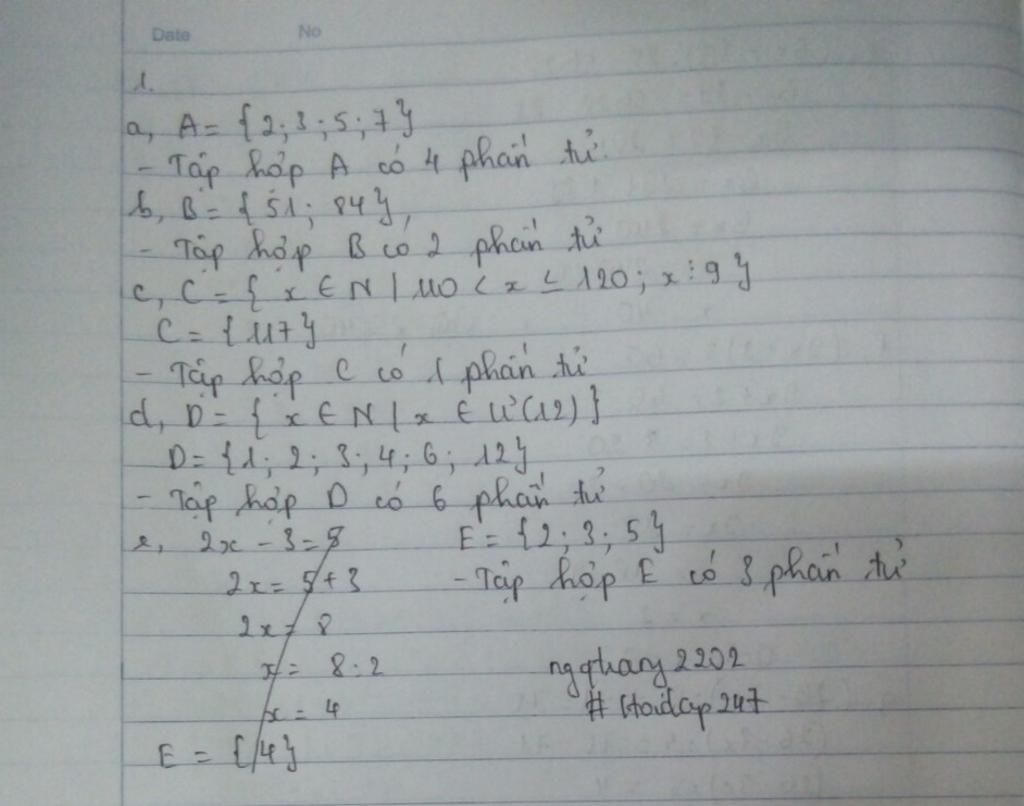 Date No
1.
a, A = {2; 3; 5; 7}
- Tập hợp A có 4 phần tử.
b, B = {51; 84},
- Tập hợp B có 2 phần tử
c, C = { x ∈ N / 110 < x ≤ 120; x ⋮ 9}
C = {117}
- Tập hợp C có 1 phần tử
d, D = { x ∈ N / x ∈ Ư(12)}
D = {1; 2; 3; 4; 6; 12}
- Tập hợp D có 6 phần tử
e, 2x - 3 = 8 E = {2; 3; 5}
2x = 5 + 3 - Tập hợp E có 3 phần tử
2x = 8
x = 8 : 2 ngqhany2202
x = 4 # Hoidap247
E = {4}